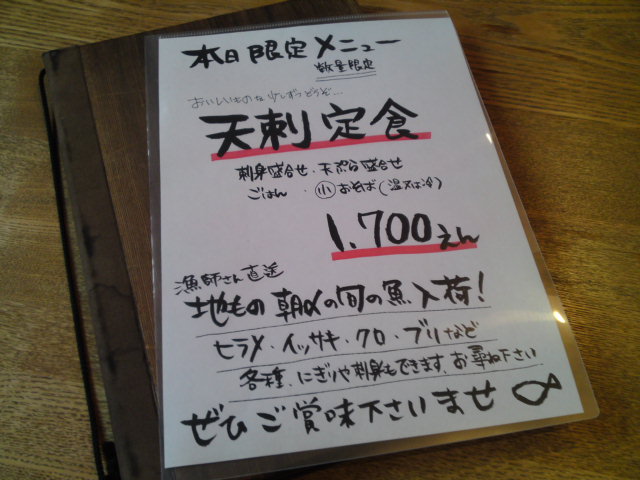 本日限定メニュー
数量限定
おいしいものを少しずつどうぞ…
天刺定食
刺身盛合せ・天ぷら盛合せ
ごはん・小おそば(温又は冷)
1,700えん
漁師さん直送
地もの朝〆の旬の魚入荷!
ヒラメ・イッサキ・クロ・ブリなど
各種、にぎりや刺身もできます。お尋ね下さい
ぜひご賞味下さいませ